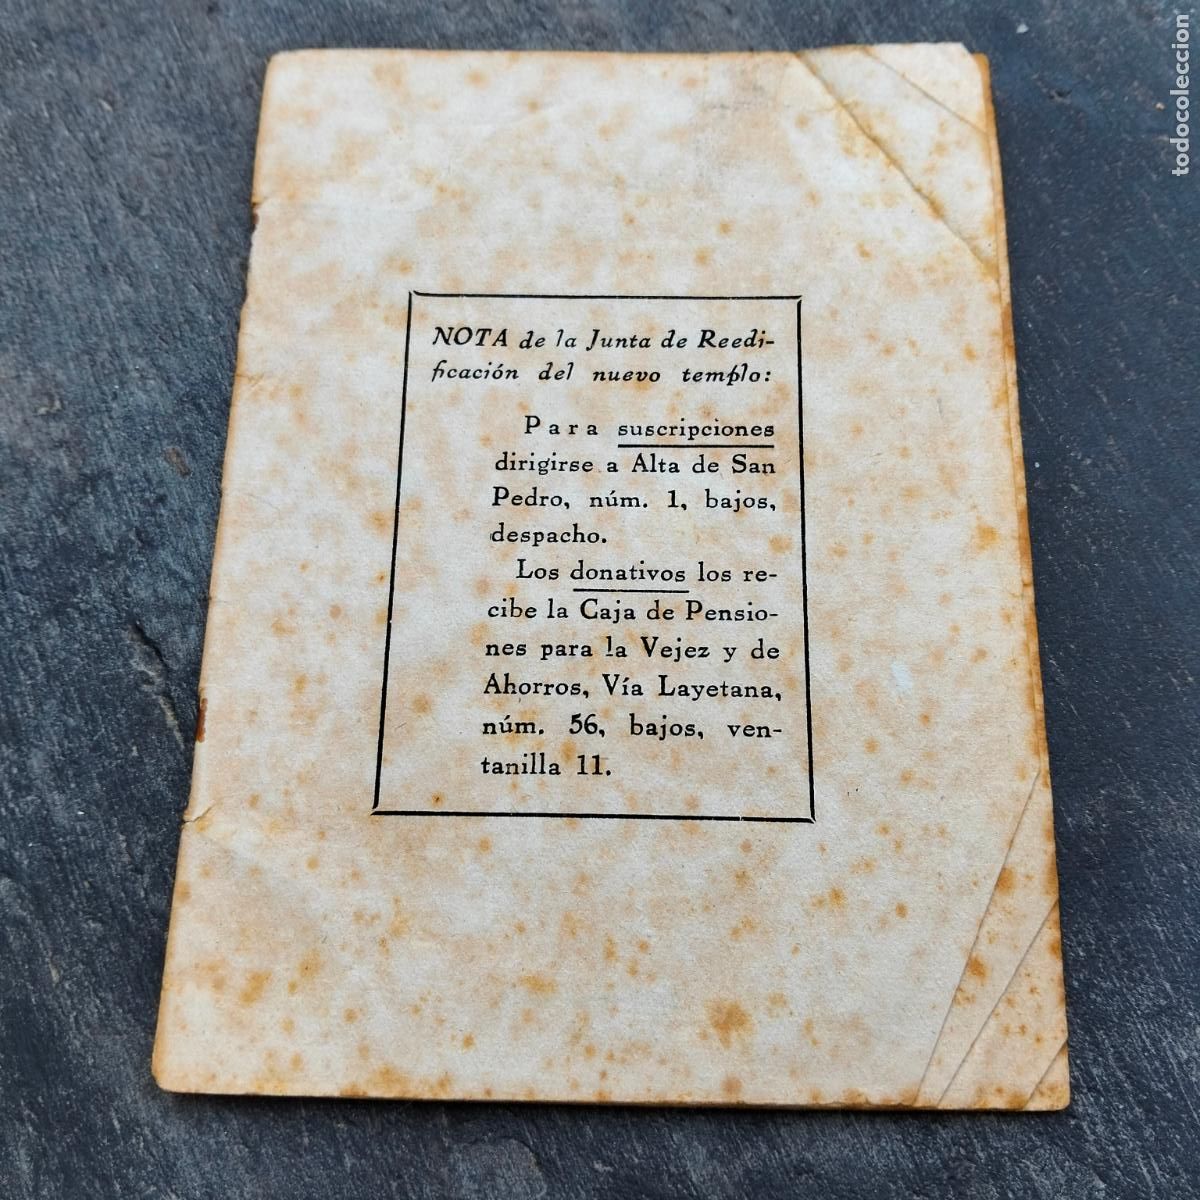 NOTA de la Junta de Reedi-
ficación del nuevo templo:
Para suscripciones
dirigirse a Alta de San
Pedro, núm. 1, bajos,
despacho.
Los donativos los re-
cibe la Caja de Pensio-
nes para la Vejez y de
Ahorros, Vía Layetana,
núm. 56, bajos, ven-
tanilla 11.
todocoleccion